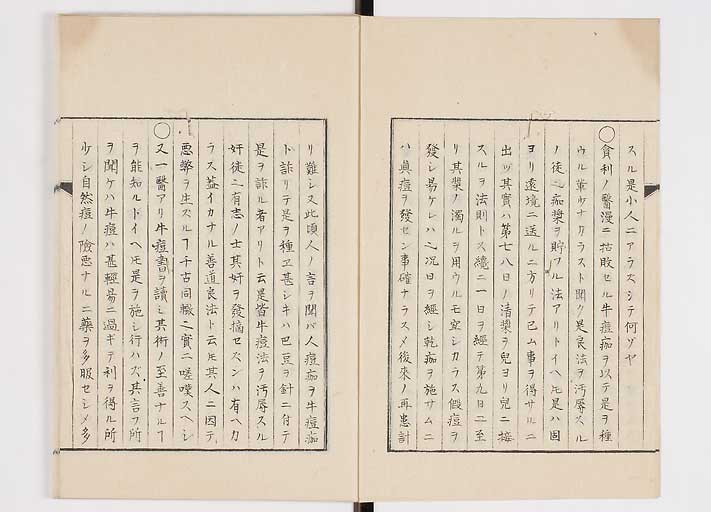 スル是小人ニアラズシテ何ゾヤ
〇貪利ノ醫漫ニ枯敗セル牛痘痂ヲ以テ是ヲ種
ウル輩少ナカラスト聞ク是良法ヲ汚辱スル
ノ徒也痂漿ヲ貯フル法アリトイヘ𪜈是ハ固
ヨリ遠境ニ送ルニ方リテ已ム事ヲ得サルニ
出ヅ其實ハ第七八日ノ清漿ヲ兒ヨリ兒ニ接
スルヲ法則トス纔ニ一日ヲ經テ第九日ニ至
リ其漿ノ濁ルヲ用ウルモ宜シカラス假痘ヲ
發シ昜ケレハ也况日ヲ經シ乾痂ヲ施サムニ
ハ眞痘ヲ發セン事確ナラスメ後來ノ再患計
リ難シス此頃人ノ言ヲ聞バ人痘痂ヲ牛痘痂
ト詐リテ是ヲ種ヱ甚シキハ巴豆ヲ針ニ付テ
是ヲ詐ル者アリト云是皆牛痘法ヲ汚辱スル
奸徒ニ有志ノ士其奸ヲ發摘セスンハ有ヘカ
ラス蓋イカナル善道良法ト云𪜈其人ニ因テ
悪弊ヲ生スルヿ千古同轍ニ實ニ嗟嘆スヘシ
〇又一醫アリ牛痘書ヲ讀シ其術ノ至善ナルヿ
ヲ能知ルトイヘ𪜈是ヲ施シ行ハズ其言フ所
ヲ聞ケハ牛痘ハ甚輕昜ニ過ギテ利ヲ得ル所
少シ自然痘ノ險悪ナルニ藥ヲ多服セシメ多